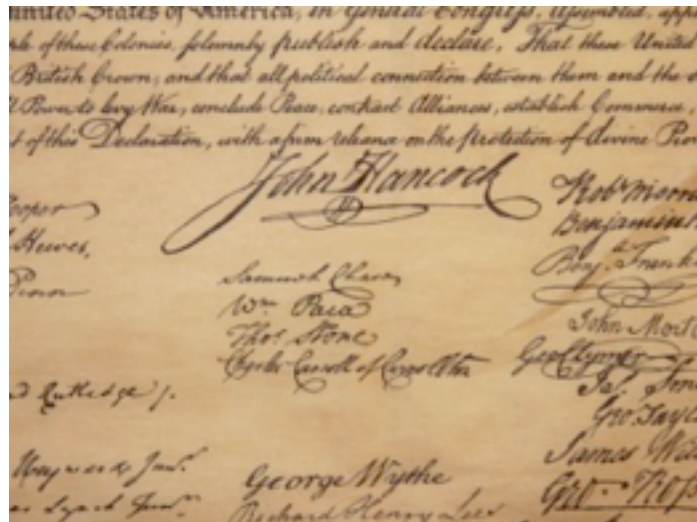 United States of America, in General Congress, Assembled, app
of these Colonies, solemnly publish and declare, That these United
British Crown, and that all political connection between them and the
Power to levy War, conclude Peace, contract Alliances, establish Commerce
t of this Declaration, with a firm reliance on the protection of divine Pro
John Hancock
ooper
Hewes,
Penn
Samuel Chase
Wm. Paca
Thos. Stone
Charles Carroll of Carrollton
Rutledge
Heyward Junr.
Lynch Junr.
George Wythe
Richard Henry Lee
Robt. Morr
Benjamin
Benj. Frank
John Mort
Geo Clymer
Jas. Sm
Geo. Tayl
James Wil
Geo. Ross